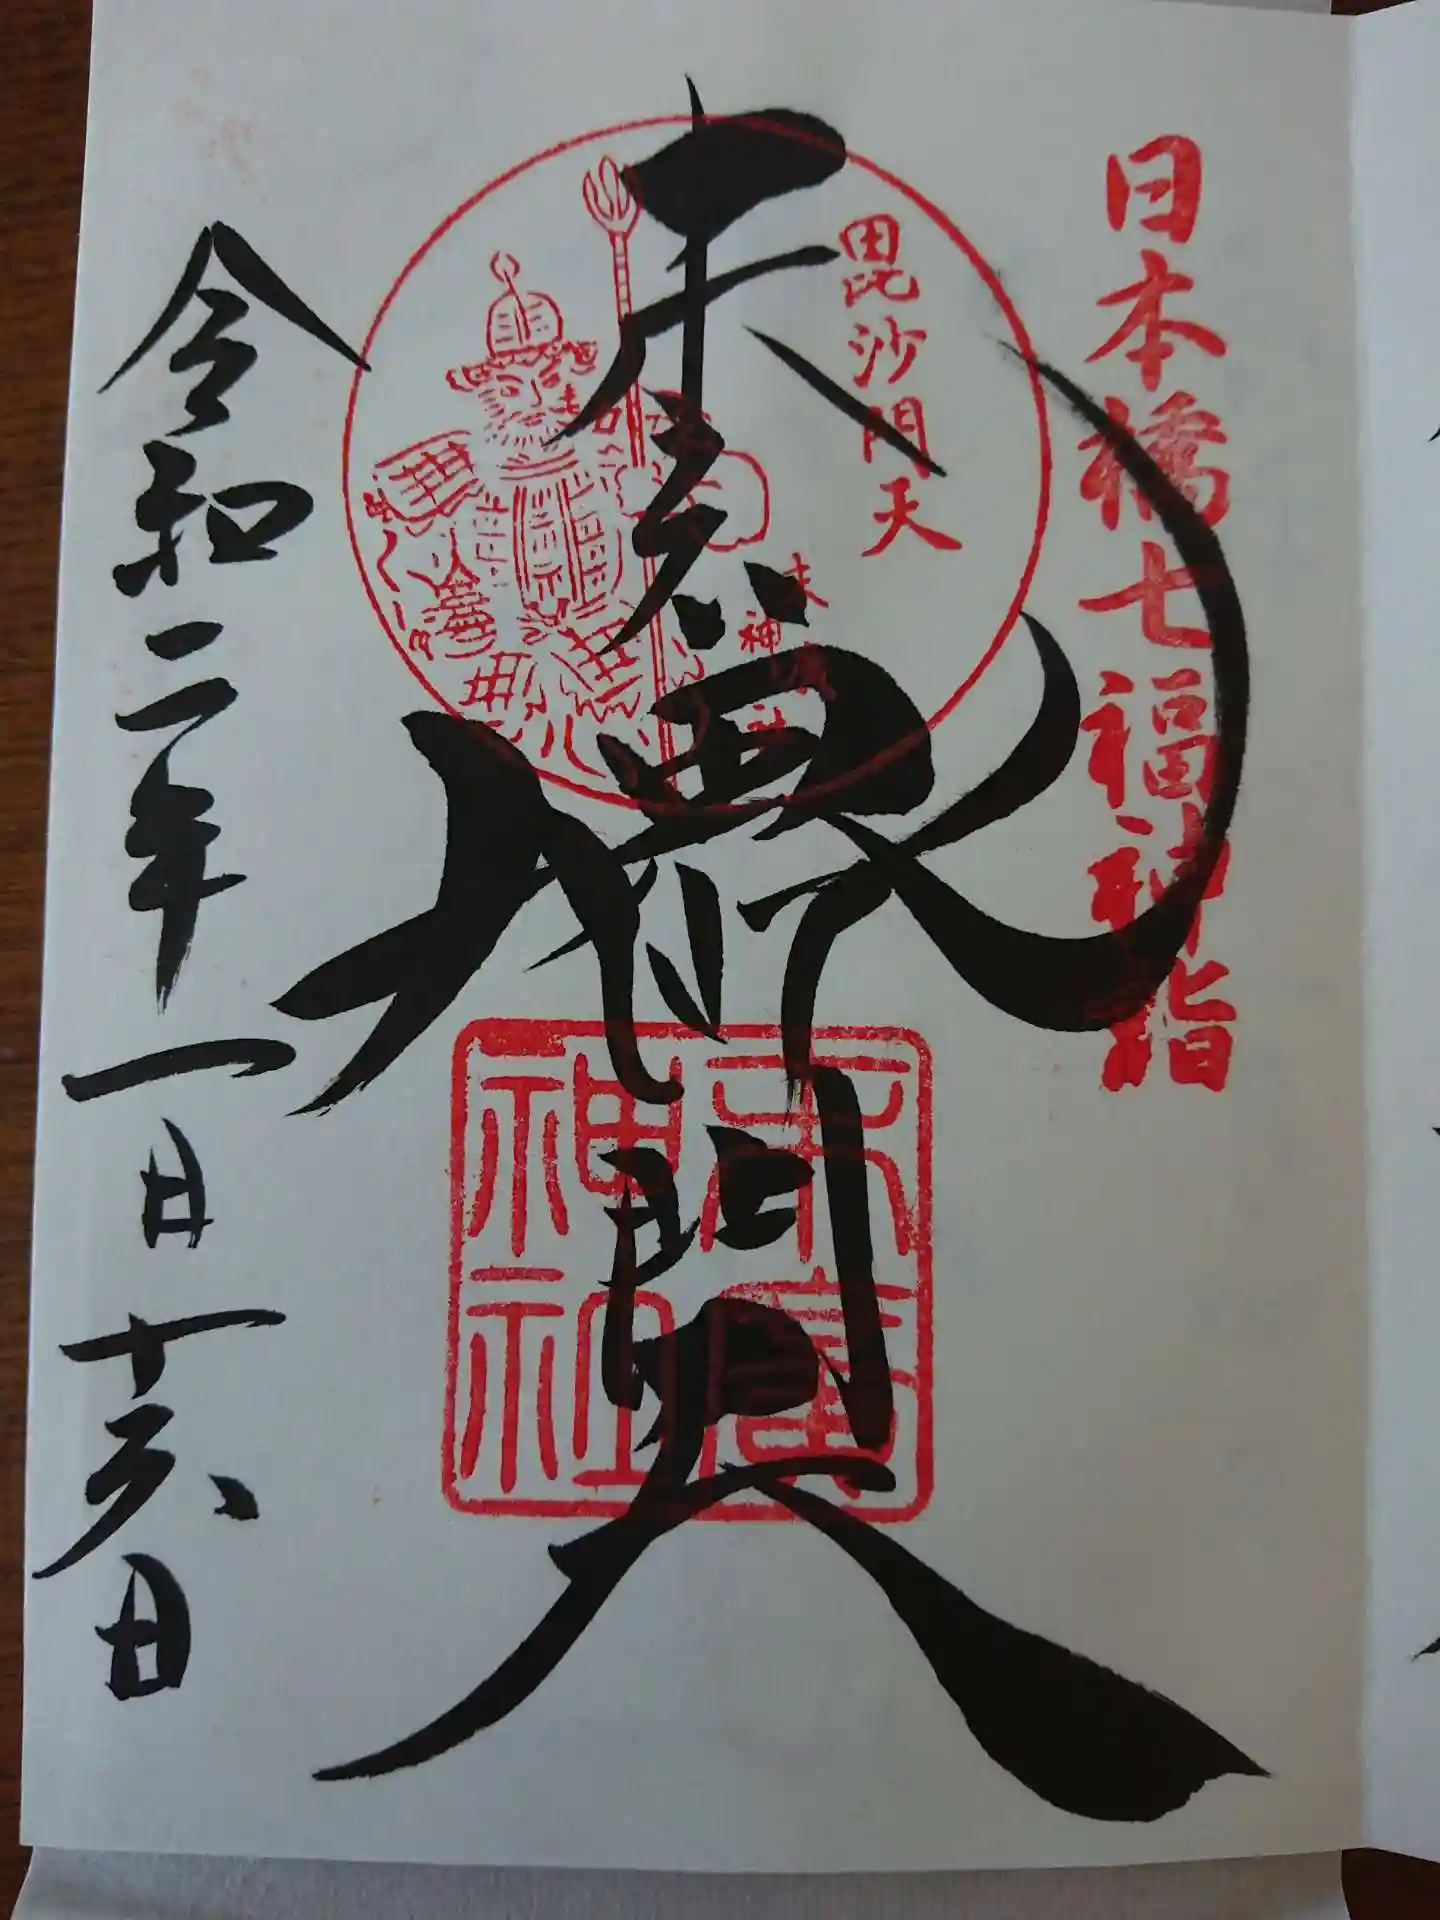 日本橋七福神詣
毘沙門天
末廣
神社
末廣
毘沙門天
末廣神社
令和二年一月十六日